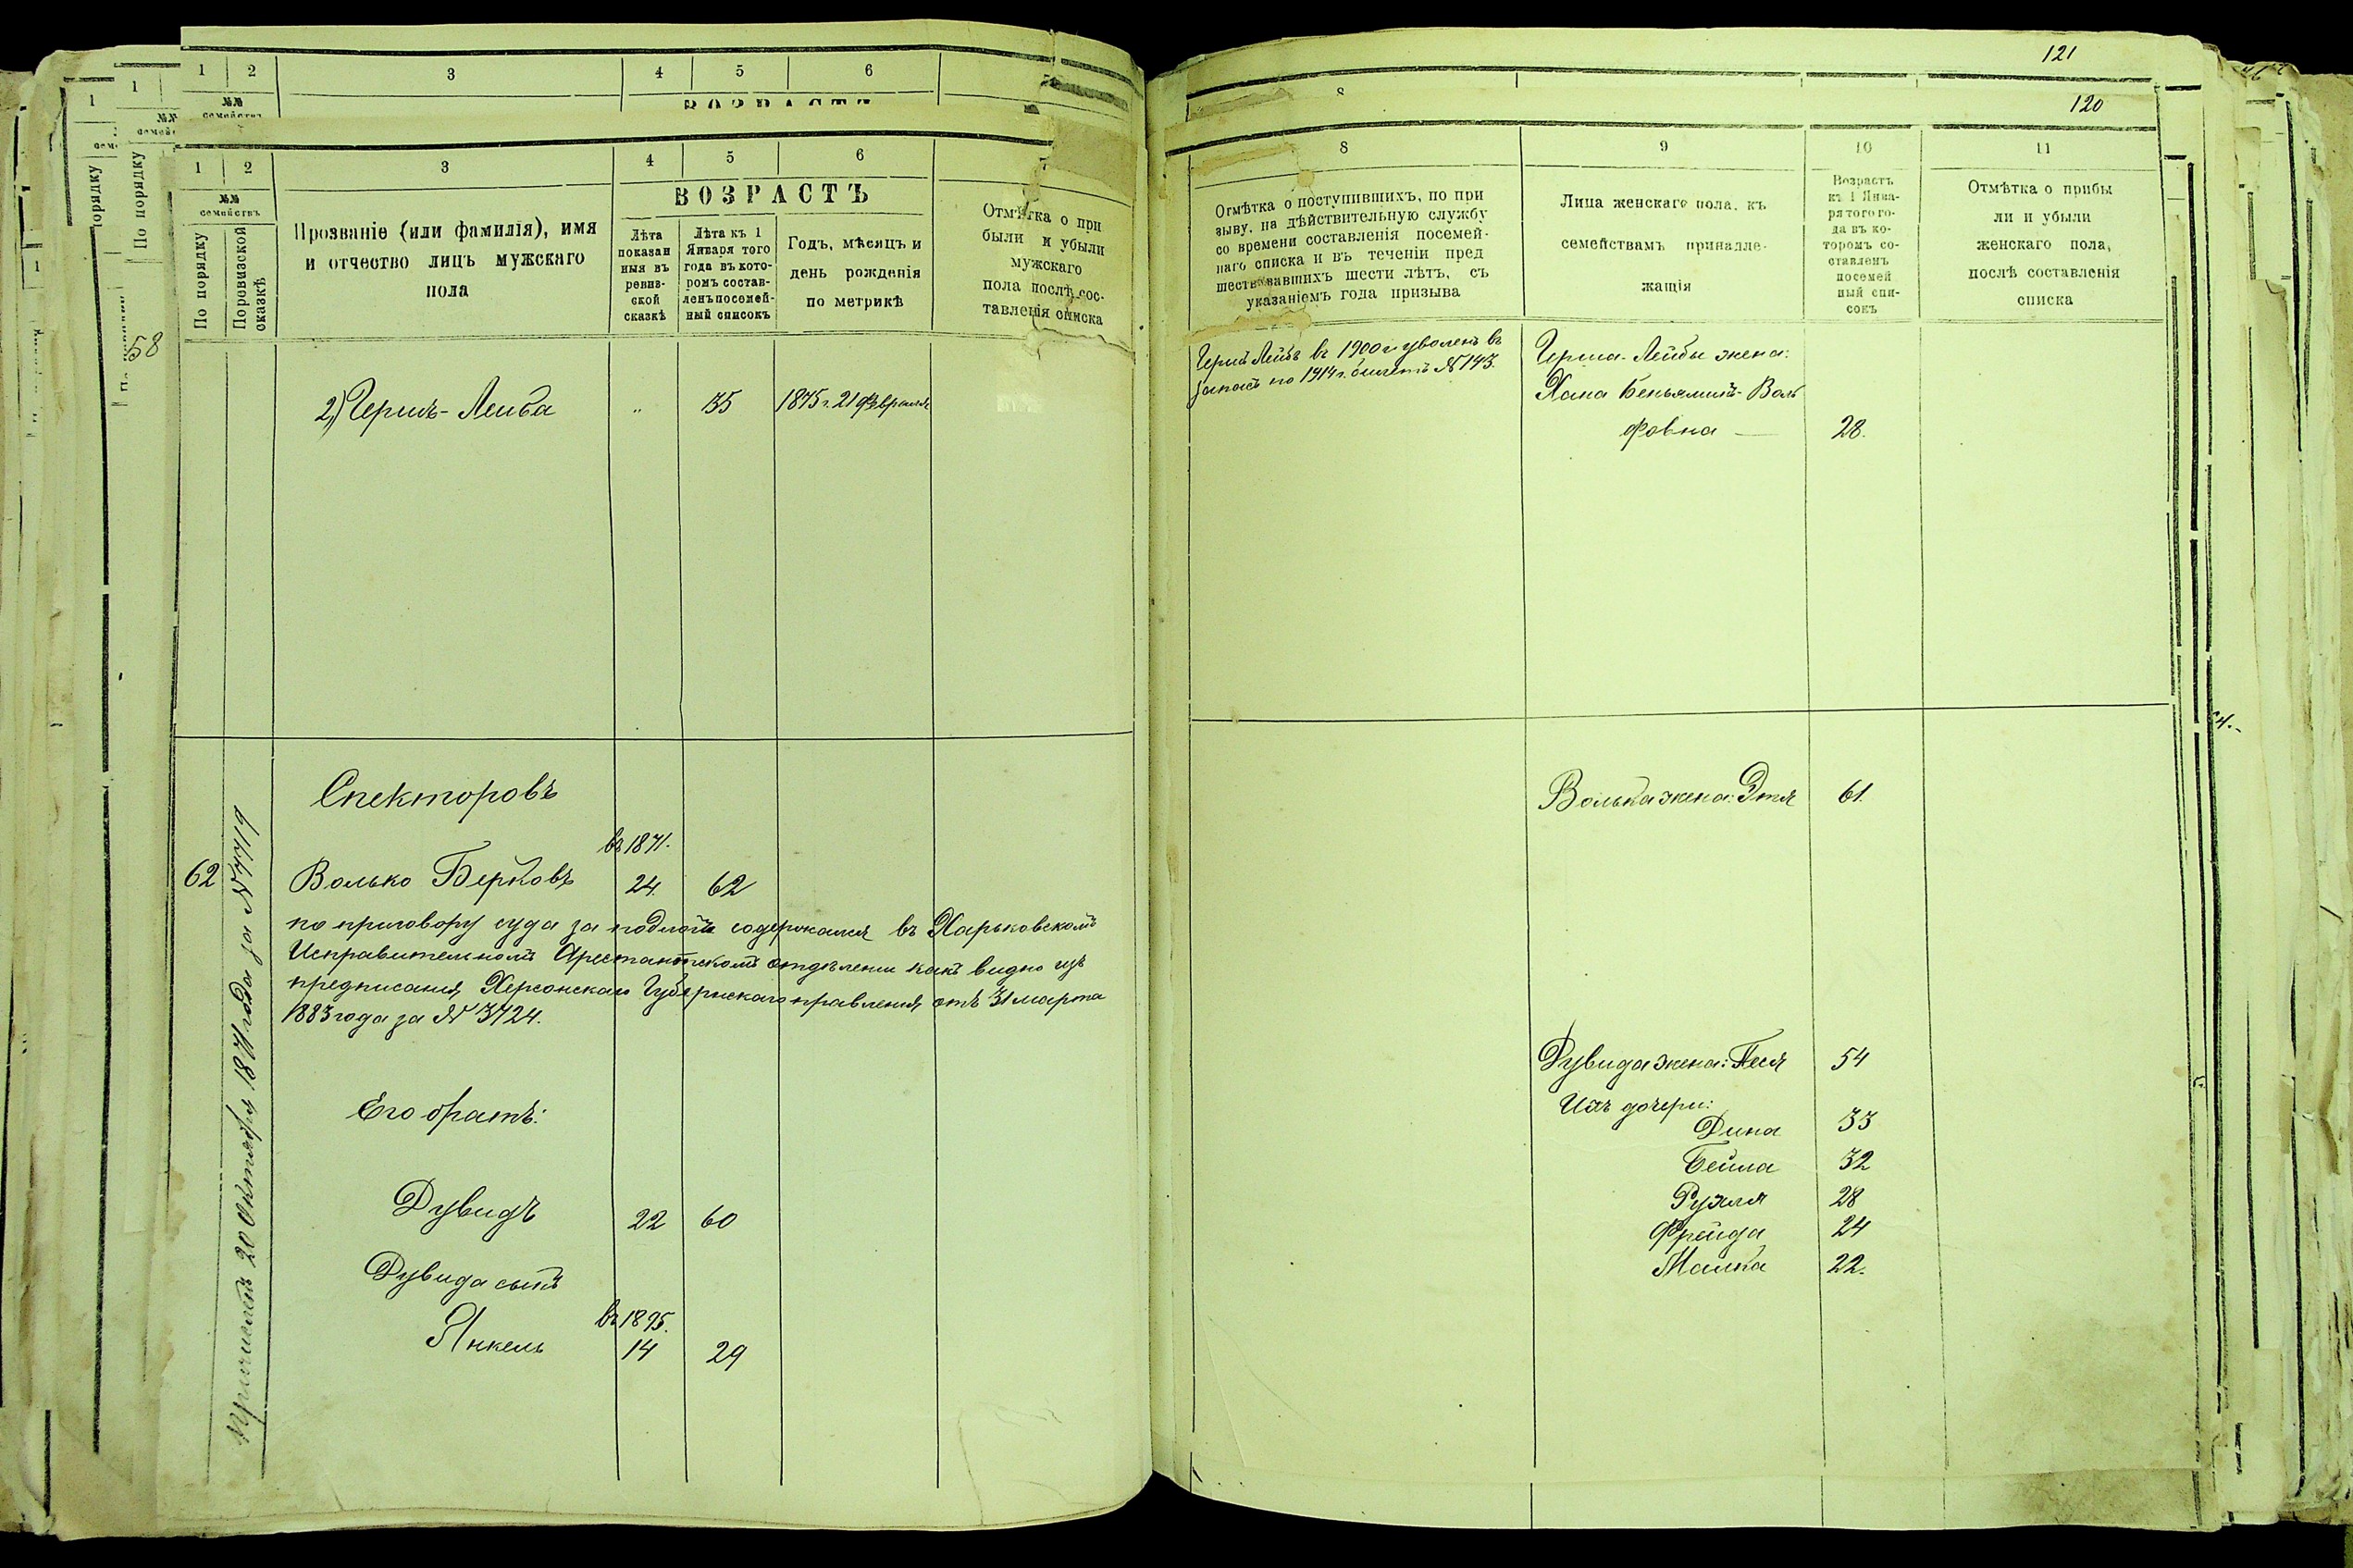 121
120
1 2 3 4 5 6
№№
семействъ
ВОЗРАСТЪ
8
1 2 3 4 5 6 7
№№
семействъ
По порядку
По ревизской
сказкѣ
Прозваніе (или фамилія), имя
и отчество лицъ мужскаго
пола
ВОЗРАСТЪ
Лѣта
показан
ныя въ
ревиз-
ской
сказкѣ
Лѣта къ 1
Января того
года въ кото-
ромъ состав-
ленъ посемей-
ный списокъ
Годъ, мѣсяцъ и
день рожденія
по метрикѣ
Отмѣтка о при
были и убыли
мужскаго
пола послѣ сос-
тавленія списка
58
2) Гершъ-Лейба " 35 1875 г. 21 февраля
Спекторовъ
въ 1871.
62 Волько Берковъ 24. 62
по приговору суда за подлогъ содержался въ Харьковскомъ
Исправительномъ Арестантскомъ отдѣленіи какъ видно изъ
предписанія Херсонскаго Губернскаго правленія отъ 31 марта
1883 года за № 3724.
Причисленъ 20 Октября 1871 года за № 7719
Его братъ:
Дувидъ 22 60
Дувида сынъ
въ 1895.
Янкель 14 29
8 9 10 11
Отмѣтка о поступившихъ, по при
зыву, на дѣйствительную службу
со времени составленія посемей-
наго списка и въ теченіи пред
шествовавшихъ шести лѣтъ, съ
указаніемъ года призыва
Лица женскаго пола, къ
семействамъ принадле-
жащія
Возрастъ
къ 1 Янва-
ря того го-
да въ ко-
торомъ со-
ставленъ
посемей
ный спи-
сокъ
Отмѣтка о прибы
ли и убыли
женскаго пола,
послѣ составленія
списка
Гершъ Лейба въ 1900 г. уволенъ въ
запасъ по 1914 г. билетъ № 143.
Герша-Лейбы жена:
Хана Беньяминъ-Воль
фовна — 28.
Волька жена: Этя 61.
Дувида жена: Песя 54
Ихъ дочери:
Дина 33
Бейла 32
Рухля 28
Фрейда 24
Малка 22.